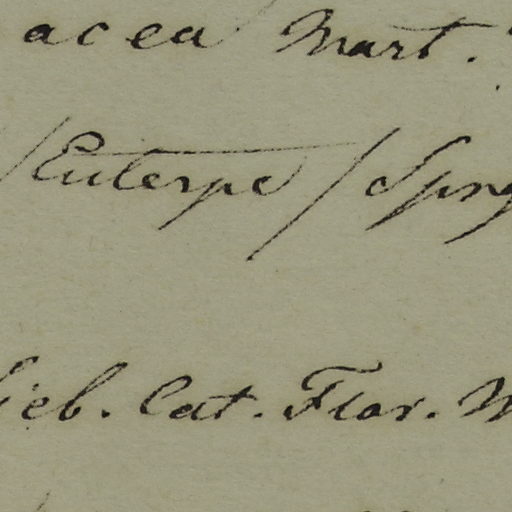 acea Mart.
/Euterpe/ Spng
ieb. Cat. Flor. W